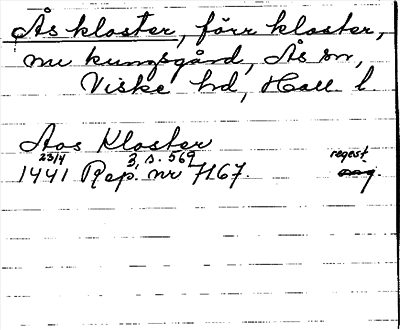 Ås kloster, förr kloster,
nu kungsgård, Ås sn,
Viske hd, Hall. l
Aos Kloster
23/4 3, s. 569 regest.
1441 Rep. nr 7167.